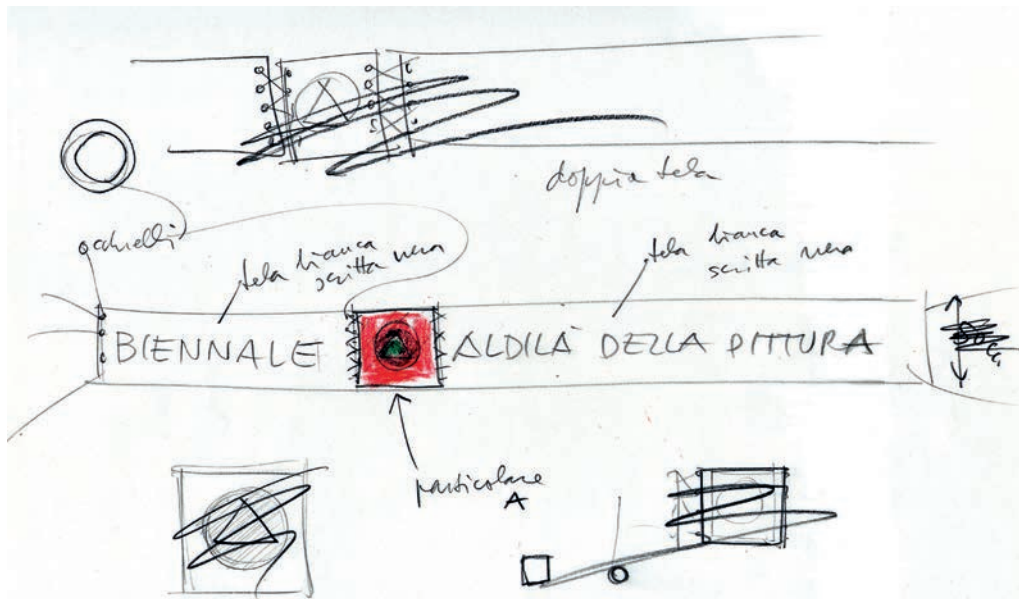 doppia tela
occhielli
tela bianca
scritta nera
tela bianca
scritta nera
BIENNALE
ALDILÀ DELLA PITTURA
particolare
A